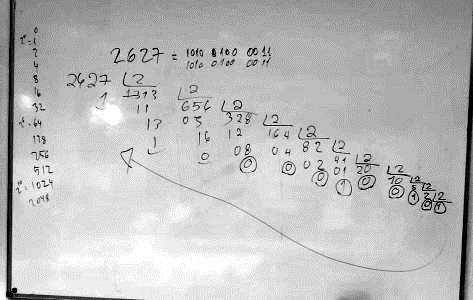 0
2⁰=1
2
4
8
16
32
2⁶=64
128
256
512
2¹⁰=1024
2048
2627 = 1010 0100 0011
1010 0100 0011
2627 2
1 1313 2
11 656 2
13 05 328 2
1 16 12 164 2
0 08 04 82 2
0 0 02 41 2
0 01 20 2
1 0 10 2
0 5 2
1 2 2
0 1